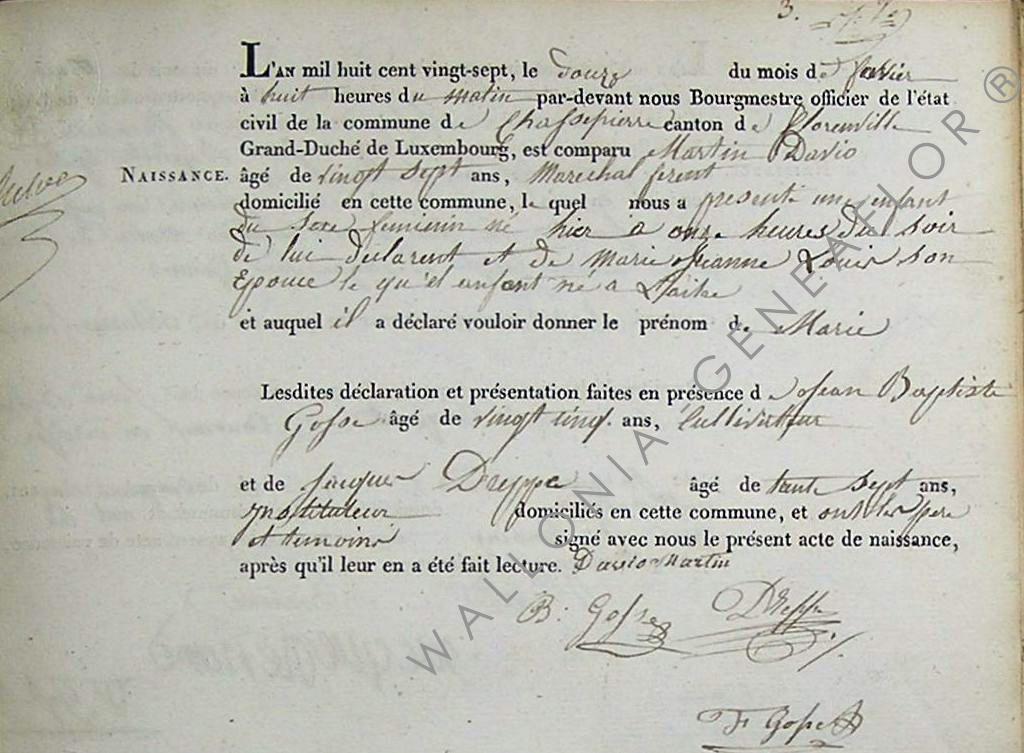 3.
L'AN mil huit cent vingt-sept, le douze du mois de fevrier
à huit heures du matin par-devant nous Bourgmestre officier de l'état
civil de la commune de Chassepierre canton de Florenville
Grand-Duché de Luxembourg, est comparu Martin Davio
NAISSANCE. âgé de vingt sept ans, marechal ferent
domicilié en cette commune, le quel nous a presenté un enfant
du sexe feminin né hier à onze heures du soir
de lui déclarent et de Marie Jeanne Louis son
Epouce le qu'el enfant né a Laiche
et auquel il a déclaré vouloir donner le prénom de Marie
Lesdites déclaration et présentation faites en présence de Jean Baptiste
Gosse âgé de vingt cinq ans, Cultivateur
et de Jacques Dreppe âgé de tante sept ans,
instituteur domiciliés en cette commune, et ont les pere
et temoins signé avec nous le présent acte de naissance,
après qu'il leur en a été fait lecture. Davio Martin
B. Gosse Dreppe
Gosse
WALLONIA GENEAFLOR ®